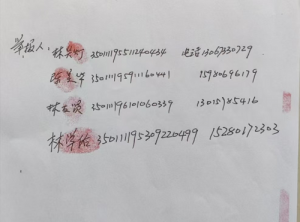 举报人：林 350111195511240434 电话13067330729
35011119591160441 15980696179
林 350111196101060339 13015785416
林学佑 350111195309220499 15280172303